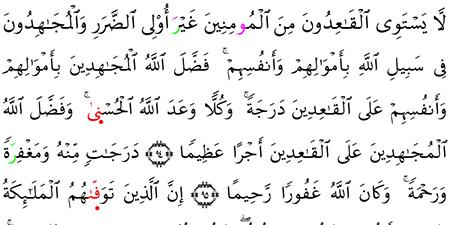 لَّا يَسْتَوِى ٱلْقَٰعِدُونَ مِنَ ٱلْمُومِنِينَ غَيْرَ أُوْلِى ٱلضَّرَرِ وَٱلْمُجَٰهِدُونَ
فِى سَبِيلِ ٱللَّهِ بِأَمْوَٰلِهِمْ وَأَنفُسِهِمْ ۚ فَضَّلَ ٱللَّهُ ٱلْمُجَٰهِدِينَ بِأَمْوَٰلِهِمْ
وَأَنفُسِهِمْ عَلَى ٱلْقَٰعِدِينَ دَرَجَةً ۚ وَكُلًّا وَعَدَ ٱللَّهُ ٱلْحُسْنىٰ ۚ وَفَضَّلَ ٱللَّهُ
ٱلْمُجَٰهِدِينَ عَلَى ٱلْقَٰعِدِينَ أَجْرًا عَظِيمًا ٩٤ دَرَجَٰتٍ مِّنْهُ وَمَغْفِرَةً
وَرَحْمَةً ۚ وَكَانَ ٱللَّهُ غَفُورًا رَّحِيمًا ٩٥ إِنَّ ٱلَّذِينَ تَوَفّىٰهُمُ ٱلْمَلَٰٓئِكَةُ